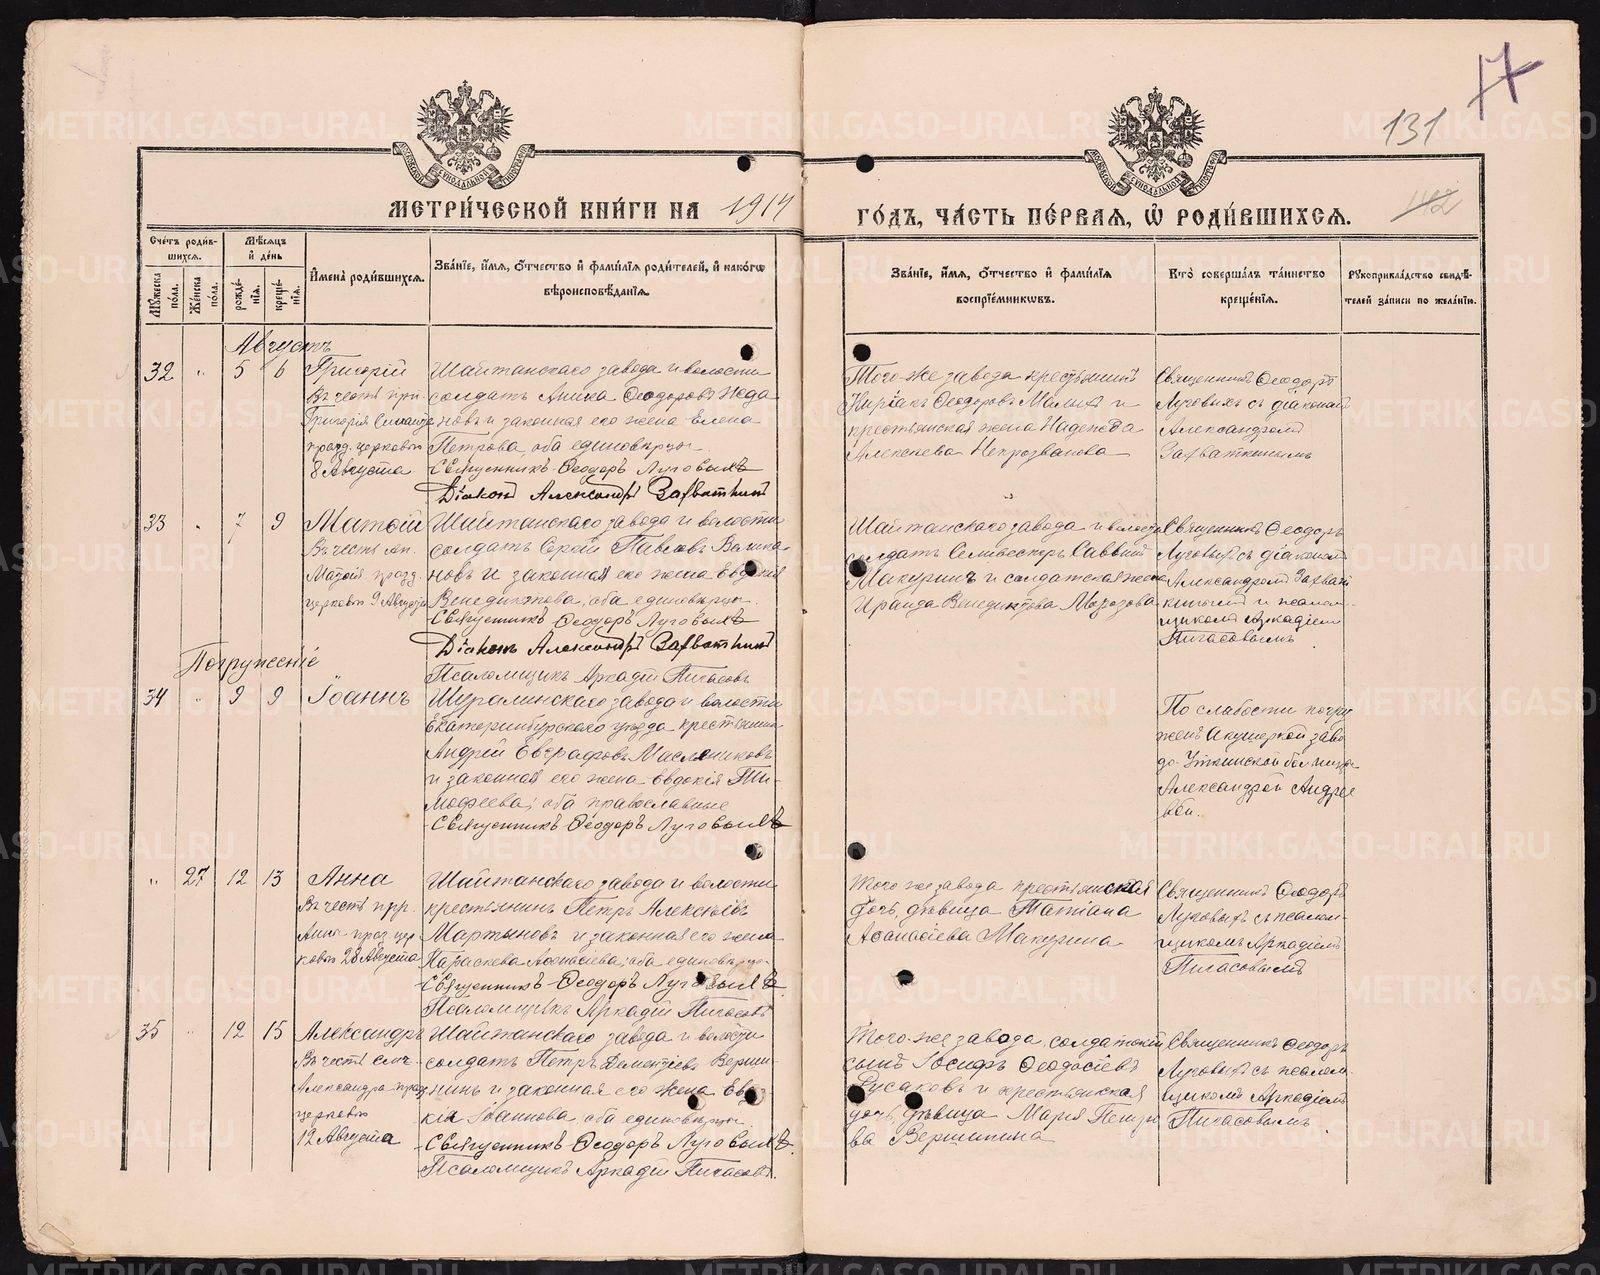 131
МЕТРИЧЕСКОЙ КНИГИ НА 1914
ГОДЪ, ЧАСТЬ ПЕРВАЯ, Ѡ РОДИВШИХСЯ.
142
Счетъ родившихся.
Мѣсяцъ и день
Мужеска пола.
Женска пола.
рожденія.
крещенія.
Имена родившихся.
Званіе, имя, отчество и фамилія родителей, и какогѡ вѣроисповѣданія.
Званіе, имя, отчество и фамилія воспріемникѡвъ.
Кто совершалъ таинство крещенія.
Рукоприкладство свидѣтелей записи по желанію.
Августъ
32 " 5 6 Григорій
Въ честь
Григорія
празд. церковью
8 Августа
Шайтанскаго завода и волости
солдатъ Аника Ѳеодоровъ
новъ и законная его жена Елена
Петрова, оба единовѣрцы.
Священникъ Ѳеодоръ Луговыхъ
Діаконъ Александръ Захваткинъ
Того-же завода крестьянинъ
Киріакъ Ѳеодоровъ Малыхъ и
крестьянская жена Надежда
Алексѣева
Священникъ Ѳеодоръ
Луговыхъ съ діакономъ
Александромъ
Захваткинымъ
33 " 7 9 Матѳій
Въ честь ап.
Матѳія празд.
церковью 9 Августа
Шайтанскаго завода и волости
солдатъ Сергѣй Павловъ Велика-
новъ и законная его жена Евдокія
Венедиктова, оба единовѣрцы.
Священникъ Ѳеодоръ Луговыхъ
Діаконъ Александръ Захваткинъ
Псаломщикъ Аркадій Пигасовъ
Шайтанскаго завода и волости
солдатъ Селивестръ Саввинъ
Макуринъ и солдатская жена
Ираида Венедиктова Морозова
Священникъ Ѳеодоръ
Луговыхъ съ діакономъ
Александромъ Захват-
кинымъ и псалом-
щикомъ Аркадіемъ
Пигасовымъ
Погруженіе
34 " 9 9 Іоаннъ
Шуралинскаго завода и волости
Екатеринбургскаго уѣзда крестьянинъ
Андрей Евграфовъ Масленниковъ
и законная его жена Евдокія Ти-
моѳеева, оба православные
Священникъ Ѳеодоръ Луговыхъ
По слабости погру-
женъ акушеркой заво-
до-Уткинской больницы
Александрой Андрее
вой.
" 27 12 13 Анна
Въ честь прр.
Анны празд. цер-
ковью 28 Августа
Шайтанскаго завода и волости
крестьянинъ Петръ Алексѣевъ
Мартыновъ и законная его жена
Параскева Аѳанасіева, оба единовѣрцы.
Священникъ Ѳеодоръ Луговыхъ.
Псаломщикъ Аркадій Пигасовъ
Того же завода крестьянская
дочь, дѣвица Татіана
Аѳанасіева Макурина
Священникъ Ѳеодоръ
Луговыхъ съ псалом-
щикомъ Аркадіемъ
Пигасовымъ
35 " 12 15 Александръ
Въ честь
Александра празд.
церковью
12 Августа
Шайтанскаго завода и волости
солдатъ Петръ Дементіевъ Верши-
нинъ и законная его жена Евдо-
кія Іоаннова, оба единовѣрцы
Священникъ Ѳеодоръ Луговыхъ.
Псаломщикъ Аркадій Пигасовъ.
Того-же завода, солдатскій
сынъ Іосифъ Ѳеодосіевъ
Русаковъ и крестьянская
дочь, дѣвица Марія Петро
ва Вершинина
Священникъ Ѳеодоръ
Луговыхъ съ псалом-
щикомъ Аркадіемъ
Пигасовымъ.
METRIKI.GASO-URAL.RU